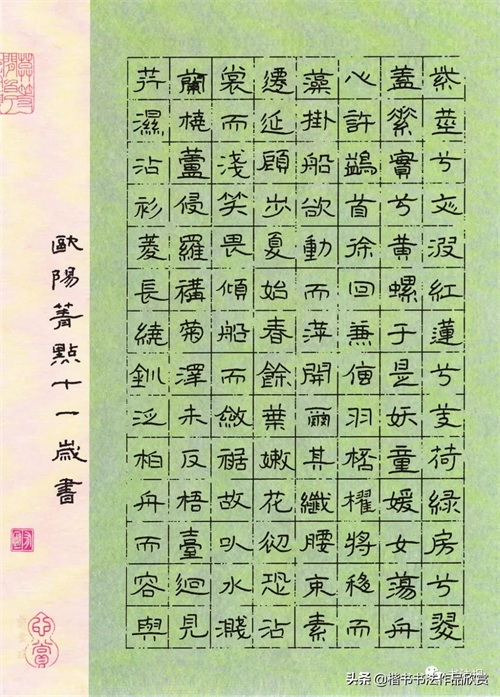 紫莖兮文波紅蓮兮芰荷綠房兮翠
蓋素實兮黃螺于是妖童媛女蕩舟
心許鷁首徐回兼傳羽桮櫂將移而
藻掛船欲動而萍開爾其纖腰束素
遷延顧步夏始春餘葉嫩花初恐沾
裳而淺笑畏傾船而斂裾故以水濺
蘭橈蘆侵羅菊澤未反梧臺迴見
荇濕沾衫菱長繞釧泛柏舟而容與
歐陽菁點十一歲書
头条 @楷书书法作品欣赏